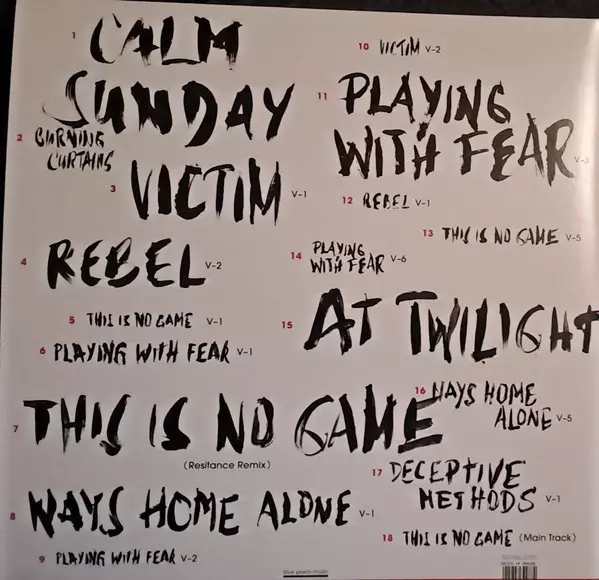 1 CALM
SUNDAY
2 BURNING
CURTAINS
3 VICTIM V-1
4 REBEL V-2
5 THIS IS NO GAME V-1
6 PLAYING WITH FEAR V-1
7 THIS IS NO GAME
(Resitance Remix)
8 WAYS HOME ALONE V-1
9 PLAYING WITH FEAR V-2
10 VICTIM V-2
11 PLAYING
WITH FEAR
12 REBEL V-1
13 THIS IS NO GAME V-5
14 PLAYING
WITH FEAR V-6
15 AT TWILIGHT
16 WAYS HOME
ALONE V-5
17 DECEPTIVE
METHODS V-1
18 THIS IS NO GAME (Main Track)